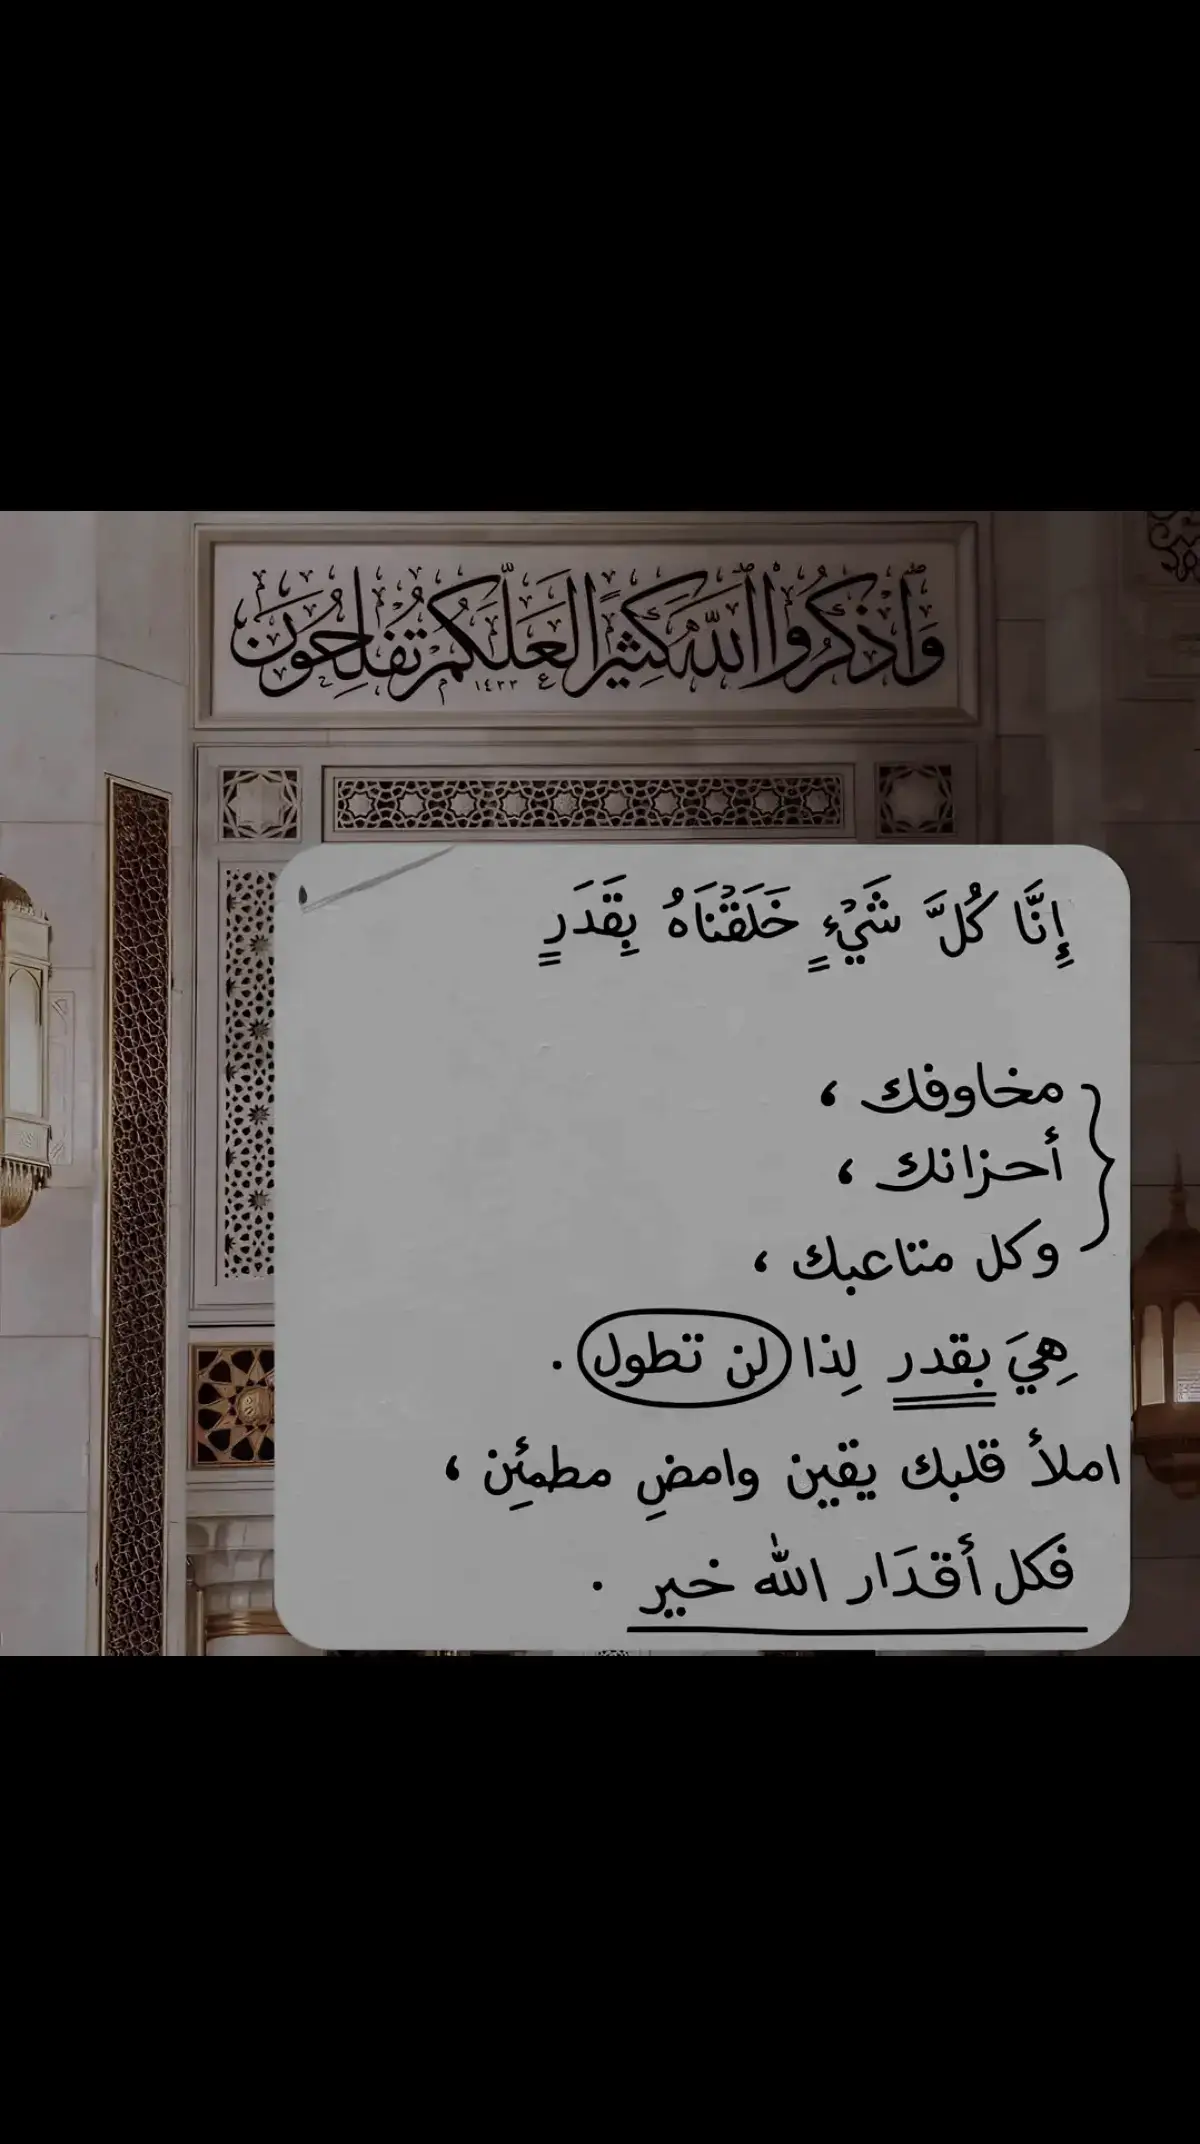 وَٱذْكُرُوا ٱللَّهَ كَثِيرًا لَعَلَّكُمْ تُفْلِحُونَ
١٤٣٣
إِنَّا كُلَّ شَيْءٍ خَلَقْنَاهُ بِقَدَرٍ
مخاوفك ،
أحزانك ،
وكل متاعبك ،
هِيَ بقدر لِذا لن تطول .
املأ قلبك يقين وامضِ مطمئِن ،
فكل أقدَار الله خير .